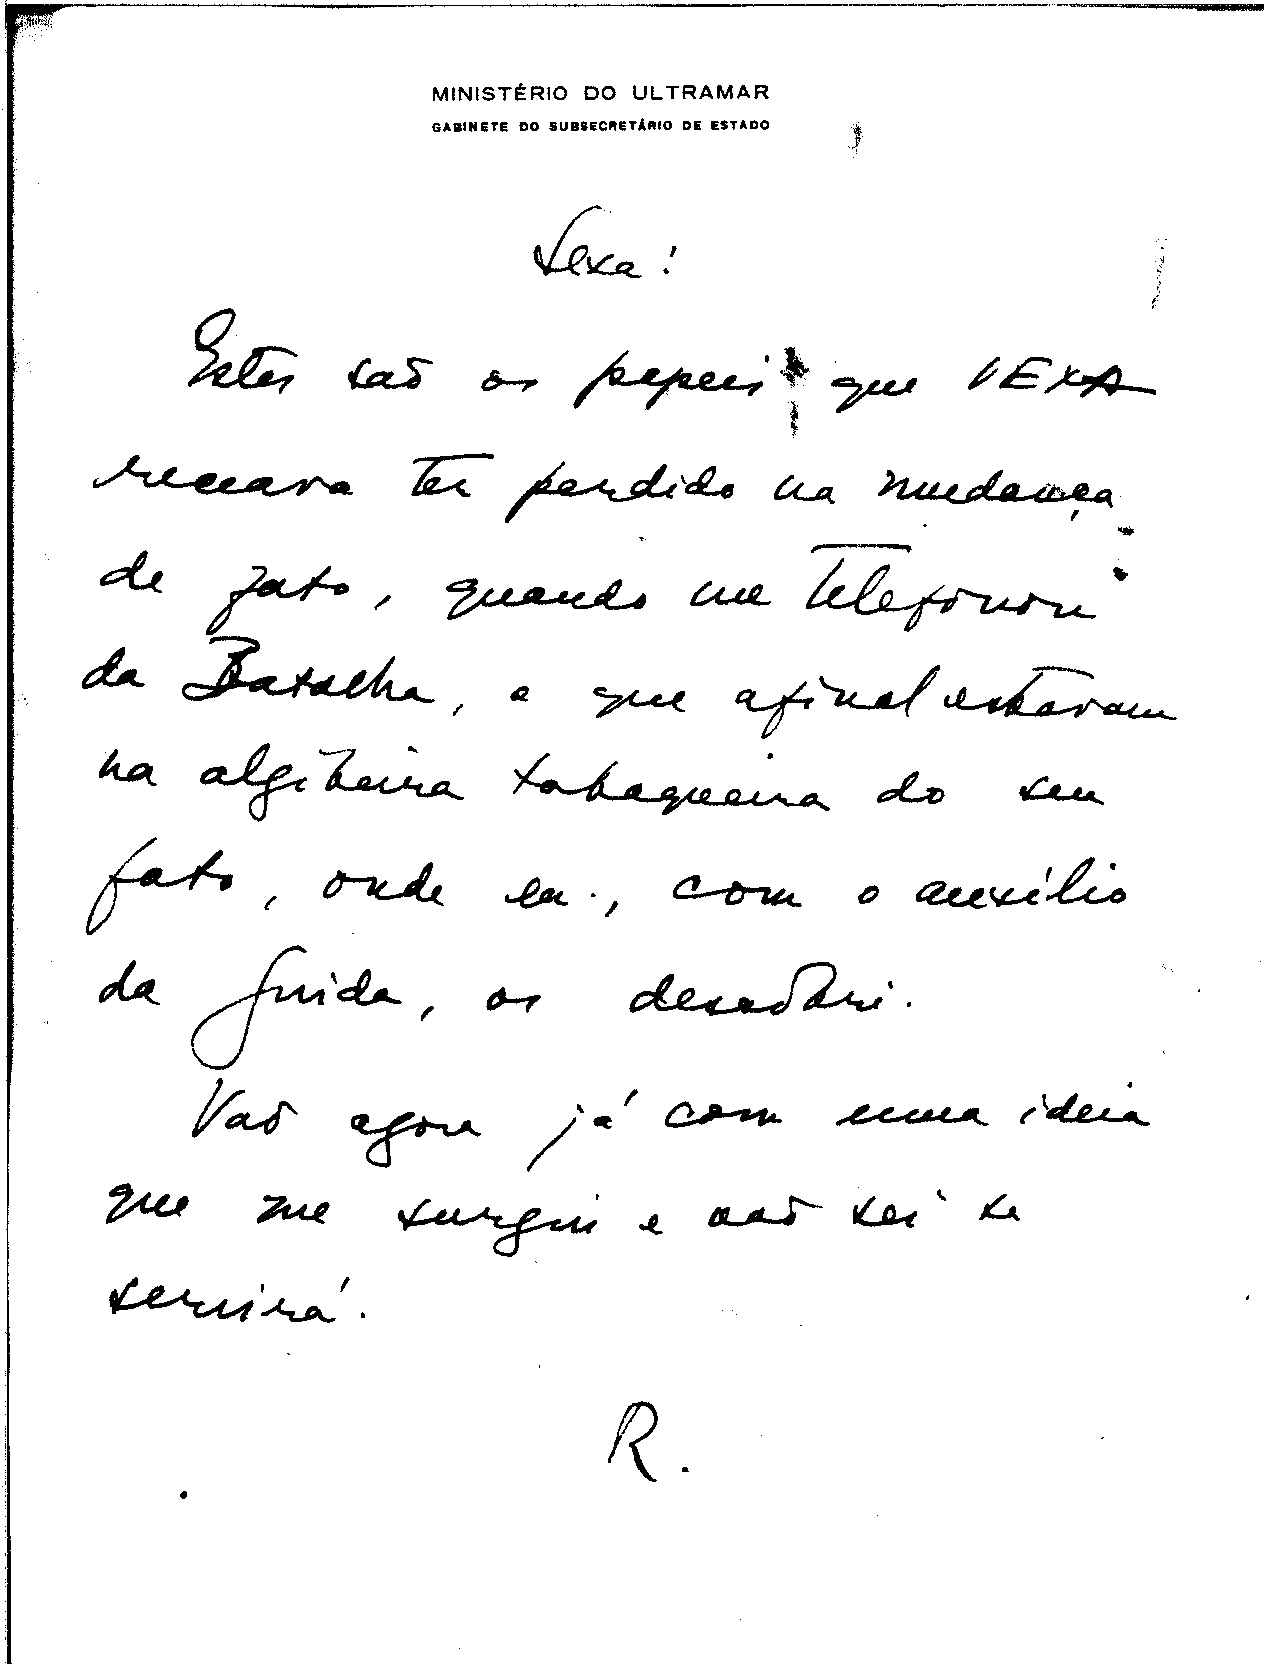 MINISTÉRIO DO ULTRAMAR
GABINETE DO SUBSECRETÁRIO DE ESTADO
Sexa!
Estes são os papeis que VEXA
receava ter perdido na mudança
de fato, quando me telefonou
da Batalha, e que afinal estavam
na algibeira tabaqueira do seu
fato, onde eu, com o auxílio
da Guida, os descobri.
Vão agora já com uma ideia
que me surgiu e não sei se
servirá.
R.